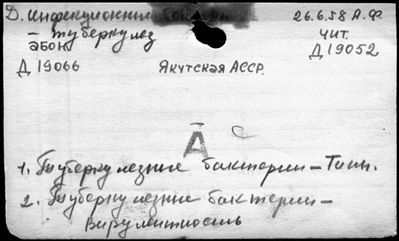 Д. инфекционные 26.6.58 А.Ф.
– туберкулез чит.
абон. Д 19052
Д 19066 Якутская АССР.
А С
1. Туберкулезные бактерии – Типы.
2. Туберкулезные бактерии –
Вирулентность